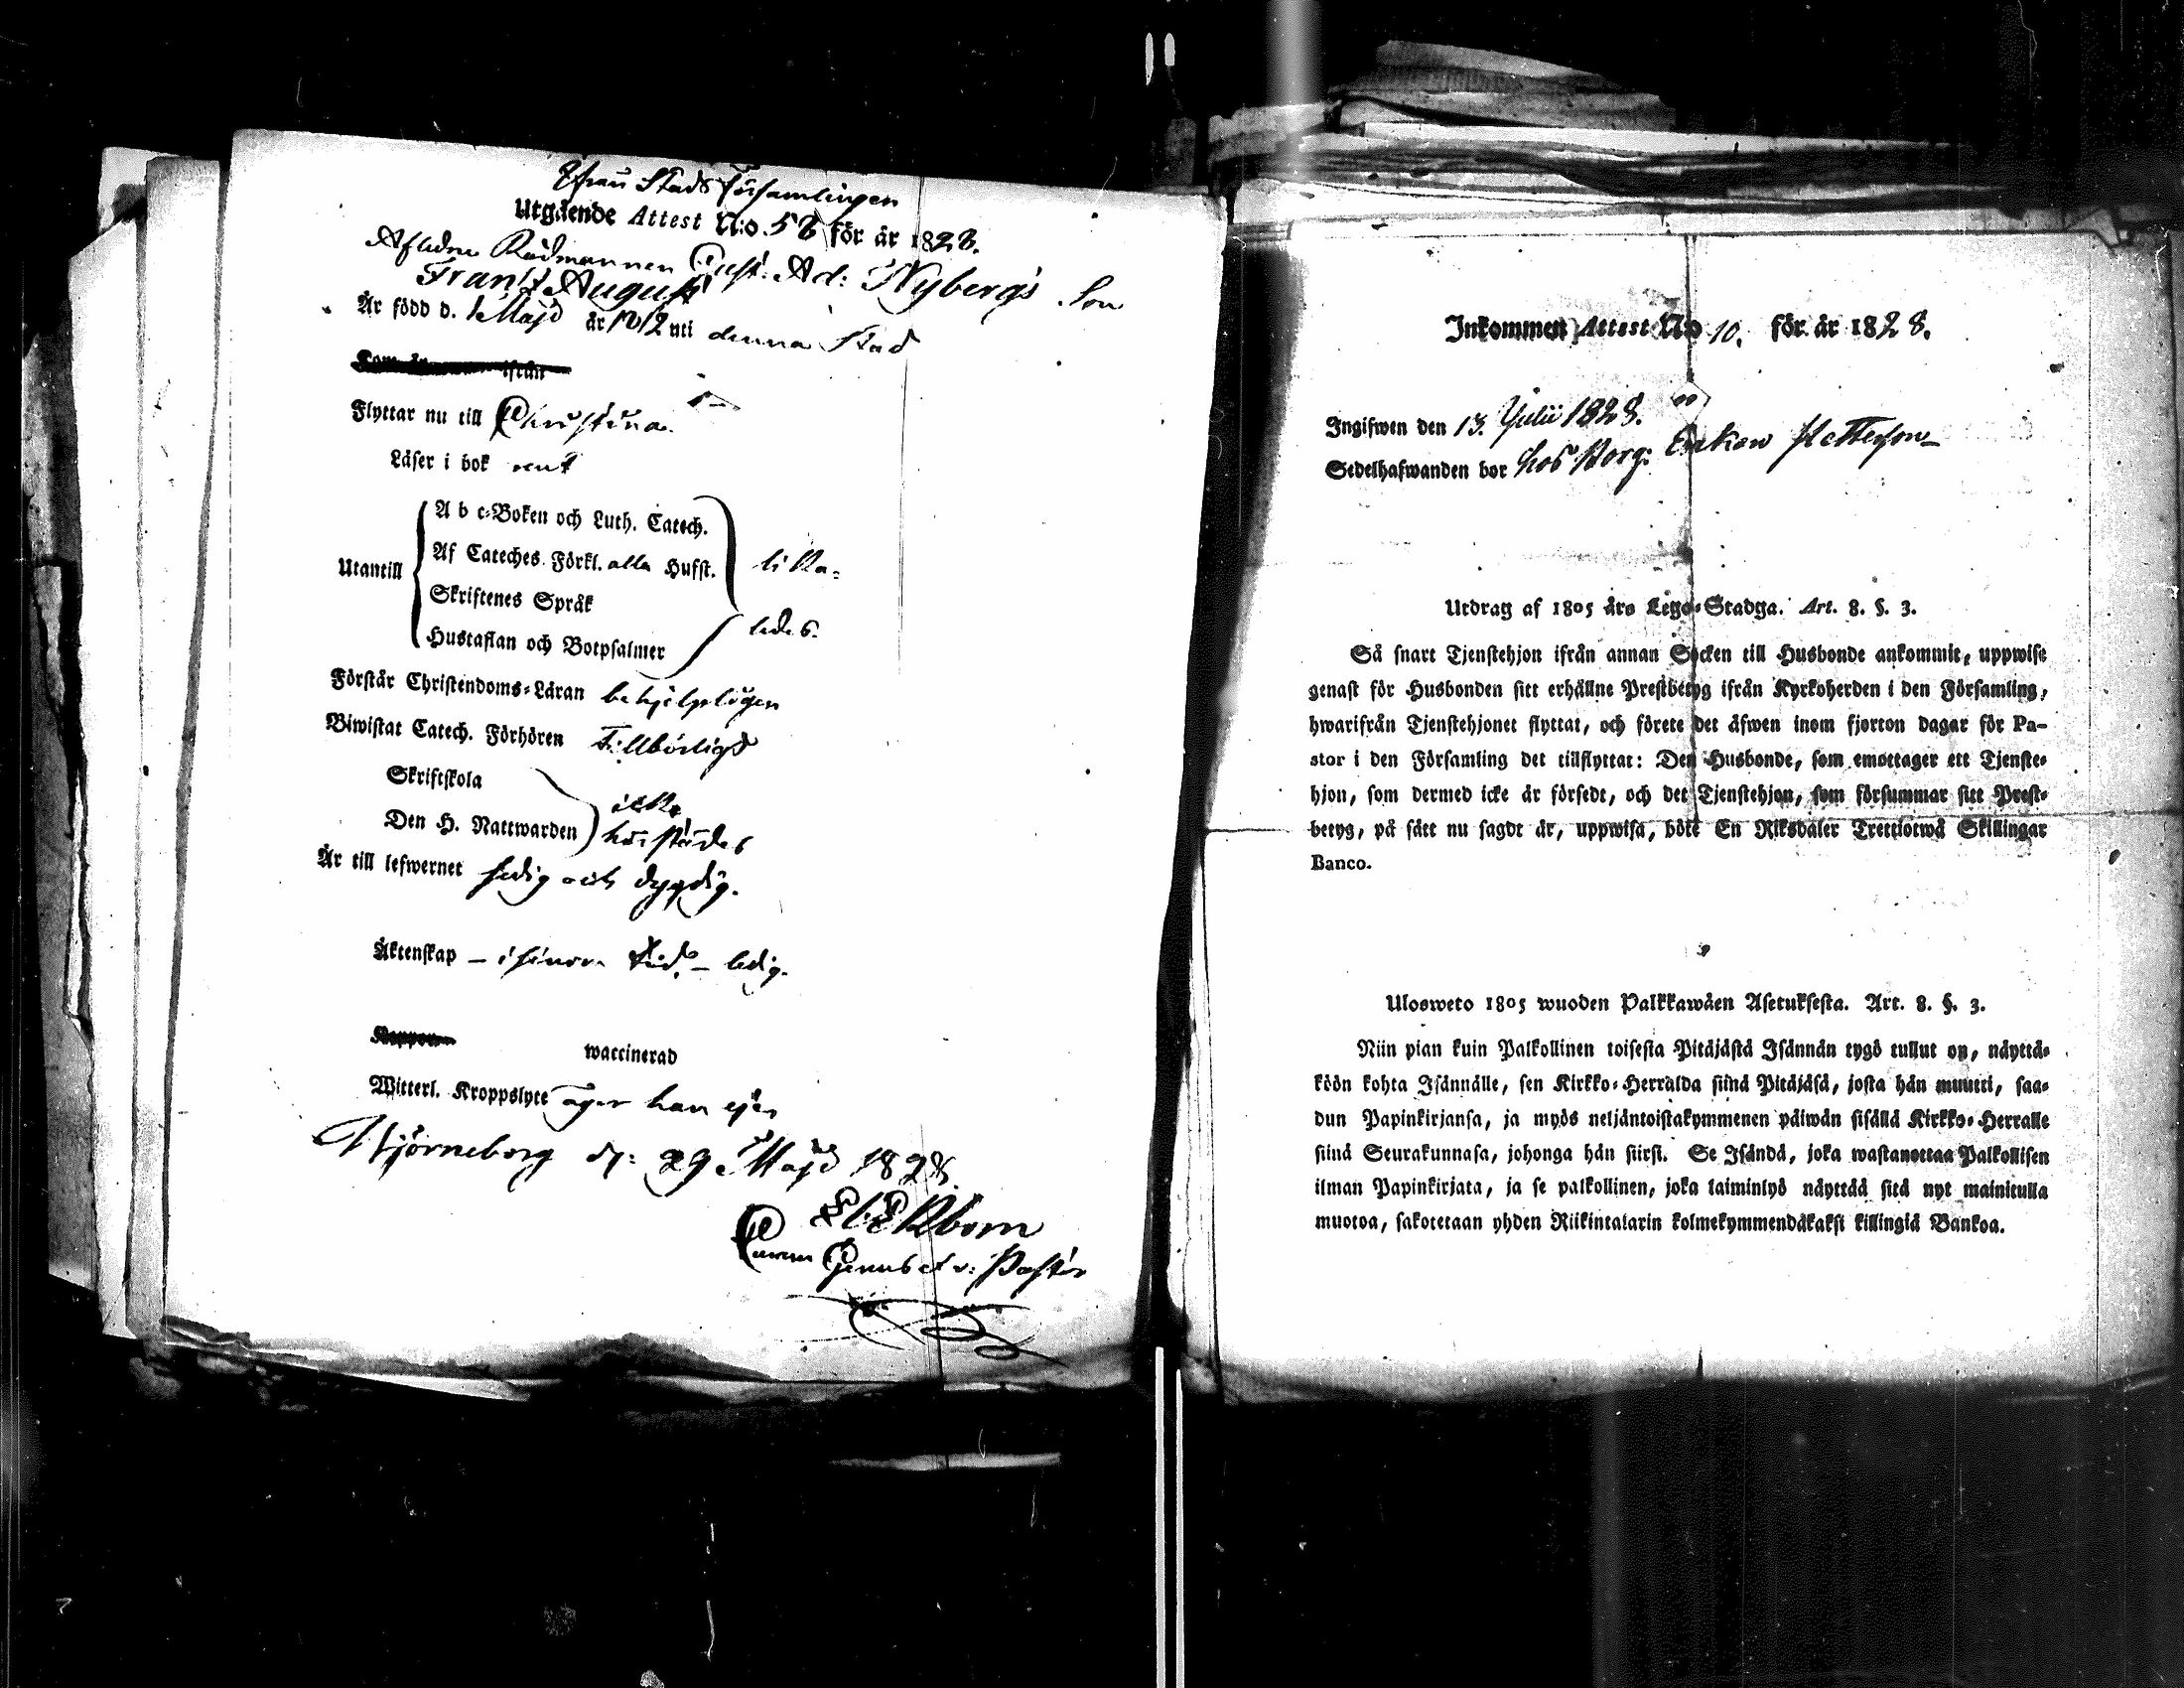 ifrån Stads församlingen
Utgående Attest N:o 58 för år 1828.
Aflidne Rådmannen Gust: Ad: Nybergs Son
Frantz August
Är född d. 1 Majd år 1812 uti denna Stad
ifrån
Flyttar nu till Christina
Läser i bok rent
Utantill
A b c-Boken och Luth. Catech.
Af Cateches Förkl. alla Hufst.
Skriftenes Språk
Hustaflan och Botpsalmer
lika-
ledes.
Förstår Christendoms-Läran behjelpligen
Biwistat Catech. Förhören Tillbörligt
Skriftskola
Den H. Nattwarden
icke
härstädes
Är till lefwernet sedig och dygdig.
Äktenskap – i senare Tid. – ledig.
Koppor
waccinerad
Witterl. Kroppslyte äger han ej
Björneborg d: 29 Majd 1828.
Ekbom
v: Pastor
Inkommen Attest N:o 10. för år 1828.
Ingifwen den 13. Julii 1828.
Sedelhafwanden bor hos Borg: Petterson
Utdrag af 1805 års Lego-Stadga. Art. 8. §. 3.
Så snart Tjenstehjon ifrån annan Socken till Husbonde ankommit, uppwise
genast för Husbonden sitt erhållne Prestbetyg ifrån Kyrkoherden i den Församling,
hwarifrån Tjenstehjonet flyttat, och förete det äfwen inom fjorton dagar för Pa-
stor i den Församling det tillflyttat: Den Husbonde, som emottager ett Tjenste-
hjon, som dermed icke är försedt, och det Tjenstehjon, som försummar sitt Prest-
betyg, på sätt nu sagdt är, uppwisa, böte En Riksdaler Trettiotwå Skillingar
Banco.
Ulosweto 1805 wuoden Palkkawäen Asetuksesta. Art. 8. §. 3.
Niin pian kuin Palkollinen toisesta Pitäjästä Isännän tygö tullut on, näyttä-
köön kohta Isännälle, sen Kirkko-Herralda siinä Pitäjäsä, josta hän muutti, saa-
dun Papinkirjansa, ja myös neljäntoistakymmenen päiwän sisällä Kirkko-Herralle
siinä Seurakunnasa, johonga hän siirsi. Se Isändä, joka wastanottaa Palkollisen
ilman Papinkirjata, ja se palkollinen, joka laiminlyö näyttää sitä nyt mainitulla
muotoa, sakotetaan yhden Riikintalarin kolmekymmendäkaksi killingiä Bankoa.